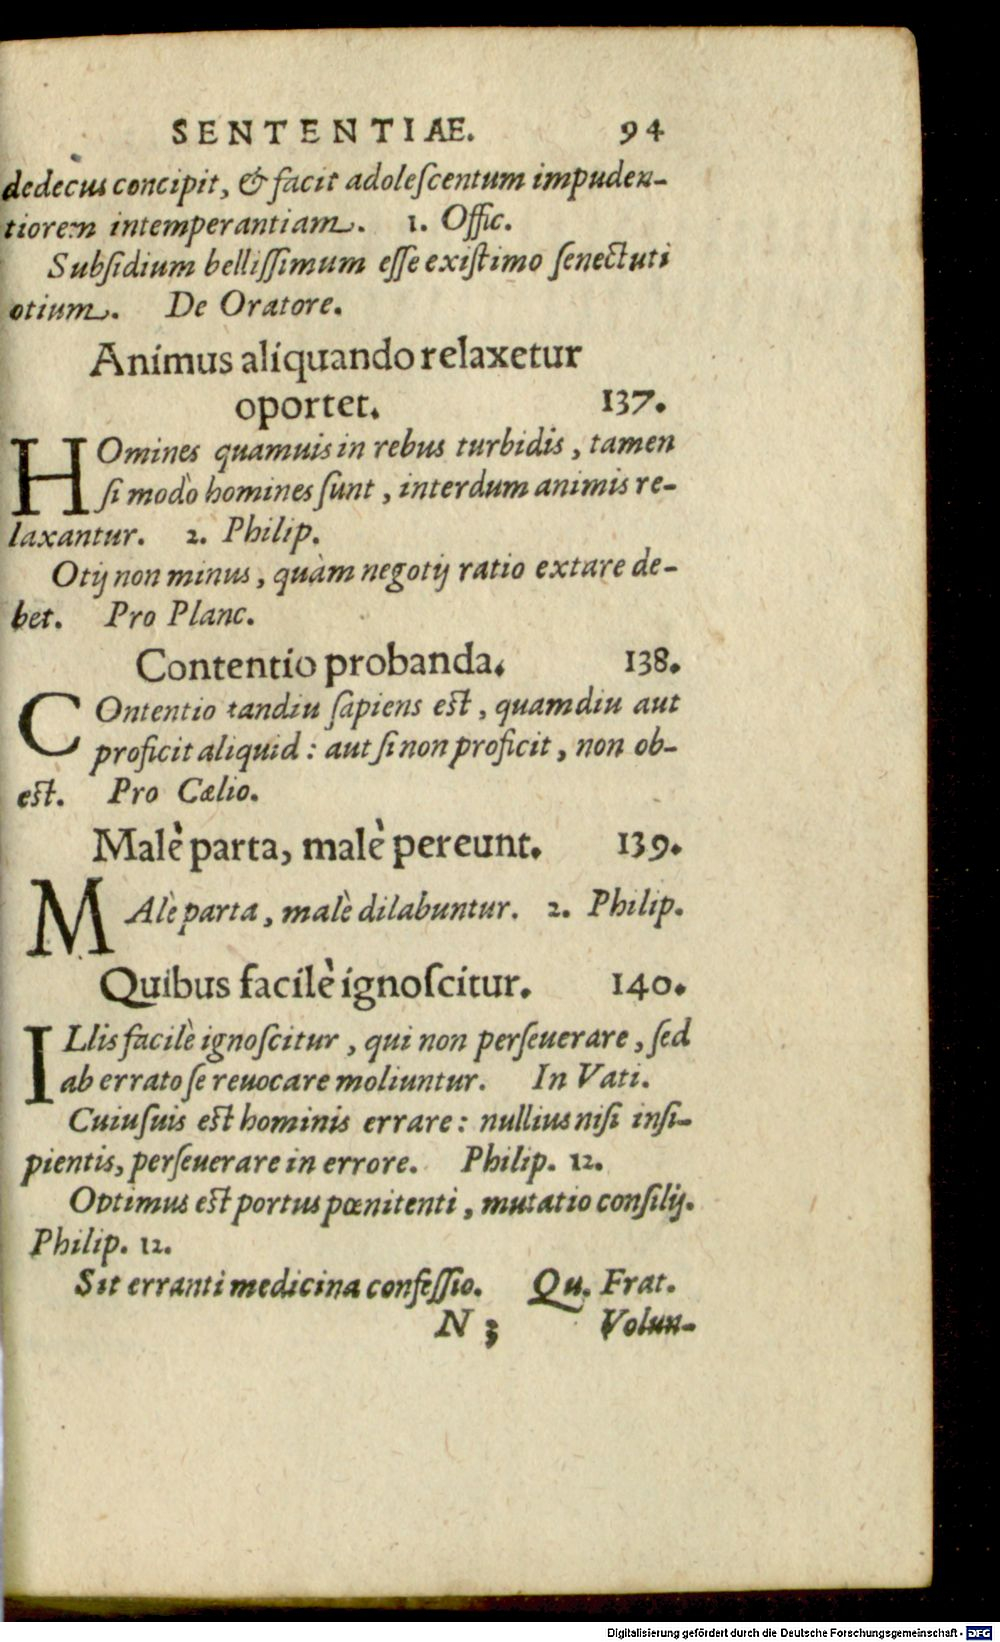 SENTENTIAE. 94
dedecus concipit, & facit adoleſcentum impuden-
tiorem intemperantiam. 1. Offic.
Subſidium belliſſimum eſſe exiſtimo ſenectuti
otium. De Oratore.
Animus aliquando relaxetur
oportet. 137.
HOmines quamuis in rebus turbidis, tamen
ſi modò homines ſunt, interdum animis re-
laxantur. 2. Philip.
Otij non minus, quàm negotij ratio extare de-
bet. Pro Planc.
Contentio probanda. 138.
COntentio tandiu ſapiens eſt, quamdiu aut
proficit aliquid: aut ſi non proficit, non ob-
eſt. Pro Cælio.
Malè parta, malè pereunt. 139.
MAlè parta, malè dilabuntur. 2. Philip.
Quibus facilè ignoſcitur. 140.
ILlis facilè ignoſcitur, qui non perſeuerare, ſed
ab errato ſe reuocare moliuntur. In Vati.
Cuiuſuis eſt hominis errare: nullius niſi inſi-
pientis, perſeuerare in errore. Philip. 12.
Optimus eſt portus pœnitenti, mutatio conſilij.
Philip. 12.
Sit erranti medicina confeſſio. Qu. Frat.
N 3 Volun-
Digitalisierung gefördert durch die Deutsche Forschungsgemeinschaft - DFG